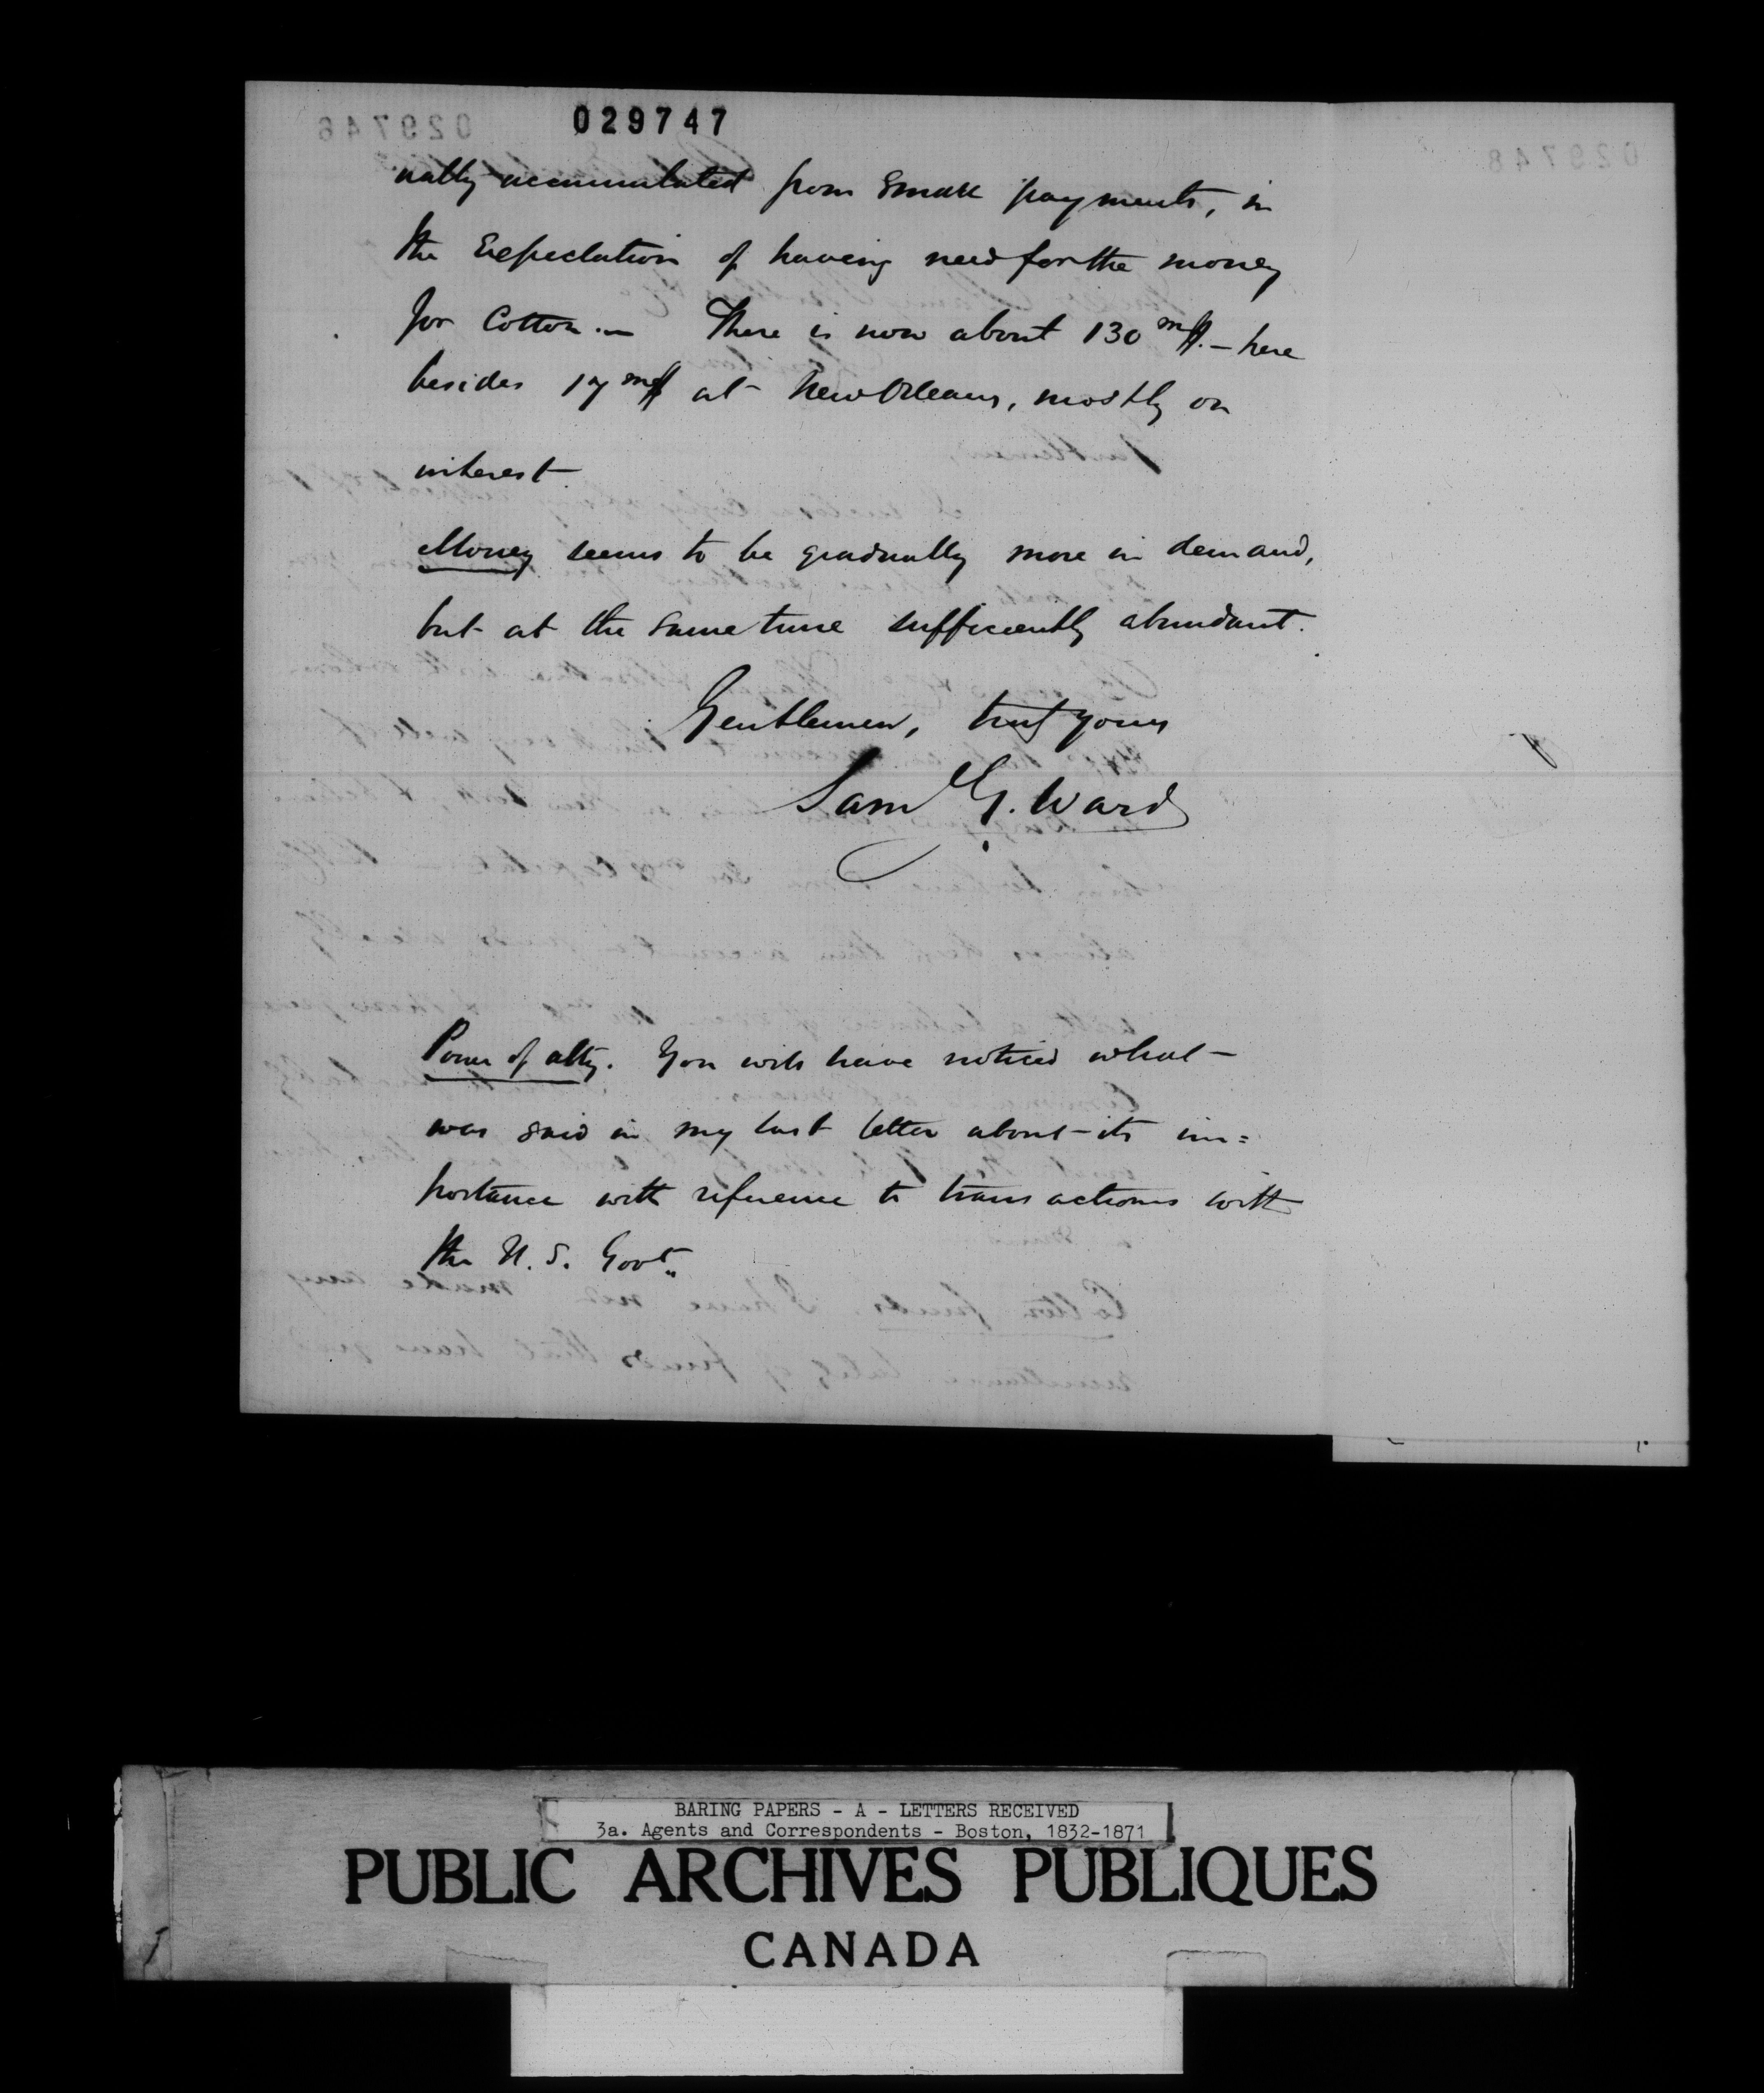 029747
ually accumulated from small payments, in
the expectation of having need for the money
for Cotton.— There is now about 130 m$.— here
besides 17 m$ at New Orleans, mostly on
interest.
Money seems to be gradually more in demand,
but at the same time sufficiently abundant.
Gentlemen, truly yours
Saml G. Ward
Power of atty. You will have noticed what
was said in my last letter about its im=
portance with reference to transactions with
the U.S. Govt.
BARING PAPERS - A - LETTERS RECEIVED
3a. Agents and Correspondents - Boston, 1832-1871
PUBLIC ARCHIVES PUBLIQUES
CANADA